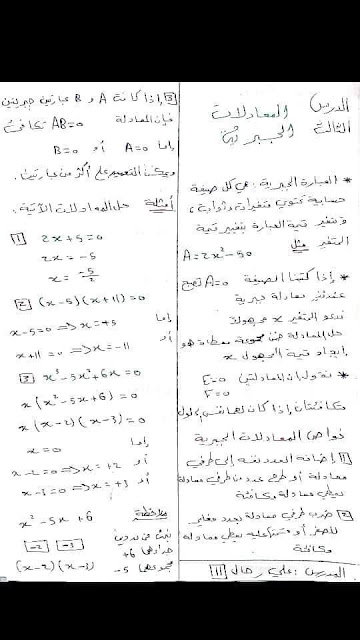 الدرس الثالث
المعادلات الجبرية
* العبارة الجبرية: هي كل صيغة
حسابية تحتوي متغيرات وثوابت،
وتتغير قيمة العبارة بتغير قيمة
المتغير مثل
A=2x²-50
* إذا كتبنا الصيغة A=0 تصبح
عندئذ معادلة جبرية
ندعو المتغير x مجهولاً
حل المعادلة ضمن مجموعة معطاة هو
إيجاد قيمة المجهول x
* نقول إن المعادلتين E=0
F=0
متكافئتان إذا كان لهما نفس الحلول
خواص المعادلات الجبرية
1 إضافة العدد نفسه إلى طرفي
معادلة أو طرح عدد من طرفي معادلة
يعطي معادلة مكافئة
2 ضرب طرفي معادلة بعدد مغاير
للصفر أو قسمتها عليه يعطي معادلة
مكافئة
المدرس: علي رحال 11
3 إذا كانت A و B عبارتين جبريتين
فإن المعادلة AB=0 تكافئ
إما A=0 أو B=0
ويمكن التعميم على أكثر من عبارتين.
أمثلة حل المعادلات الآتية.
1 2x+5=0
2x=-5
x=-5/2
2 (x-5)(x+11)=0
إما x-5=0 ⇒ x=+5
أو x+11=0 ⇒ x=-11
3 x³-5x²+6x=0
x(x²-5x+6)=0
x(x-2)(x-3)=0
إما x=0
أو x-2=0 ⇒ x=+2
أو x-3=0 ⇒ x=+3
ملاحظة x²-5x+6
نبحث عن عددين
جداؤهما +6
-2 -3
مجموعهما -5
(x-2)(x-3)